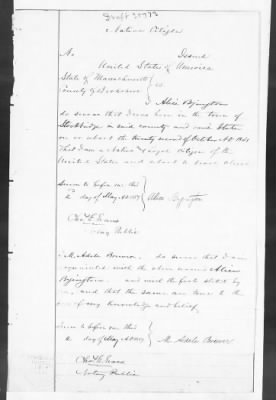 Native Citizen
No Issued
United States of America
State of Massachusetts } ss.
County of Berkshire
I Alice Byington
do swear that I was born in the town of
Stockbridge in said county and said State
on or about the twenty second of October A.D. 1841
That I am a Native and loyal Citizen of the
United States and about to travel abroad
Sworn to before me this
day of May A.D. 1877 } Alice Byington
Chas. E. Evans
Notary Public
I M. Adele Brewer do swear that I am
acquainted with the above named Alice
Byington and that the facts stated by
her, and that the same are true to the
of my knowledge and belief,
Sworn to before me this
day of May A.D. 1877 } M. Adele Brewer
Chas. E. Evans
Notary Public